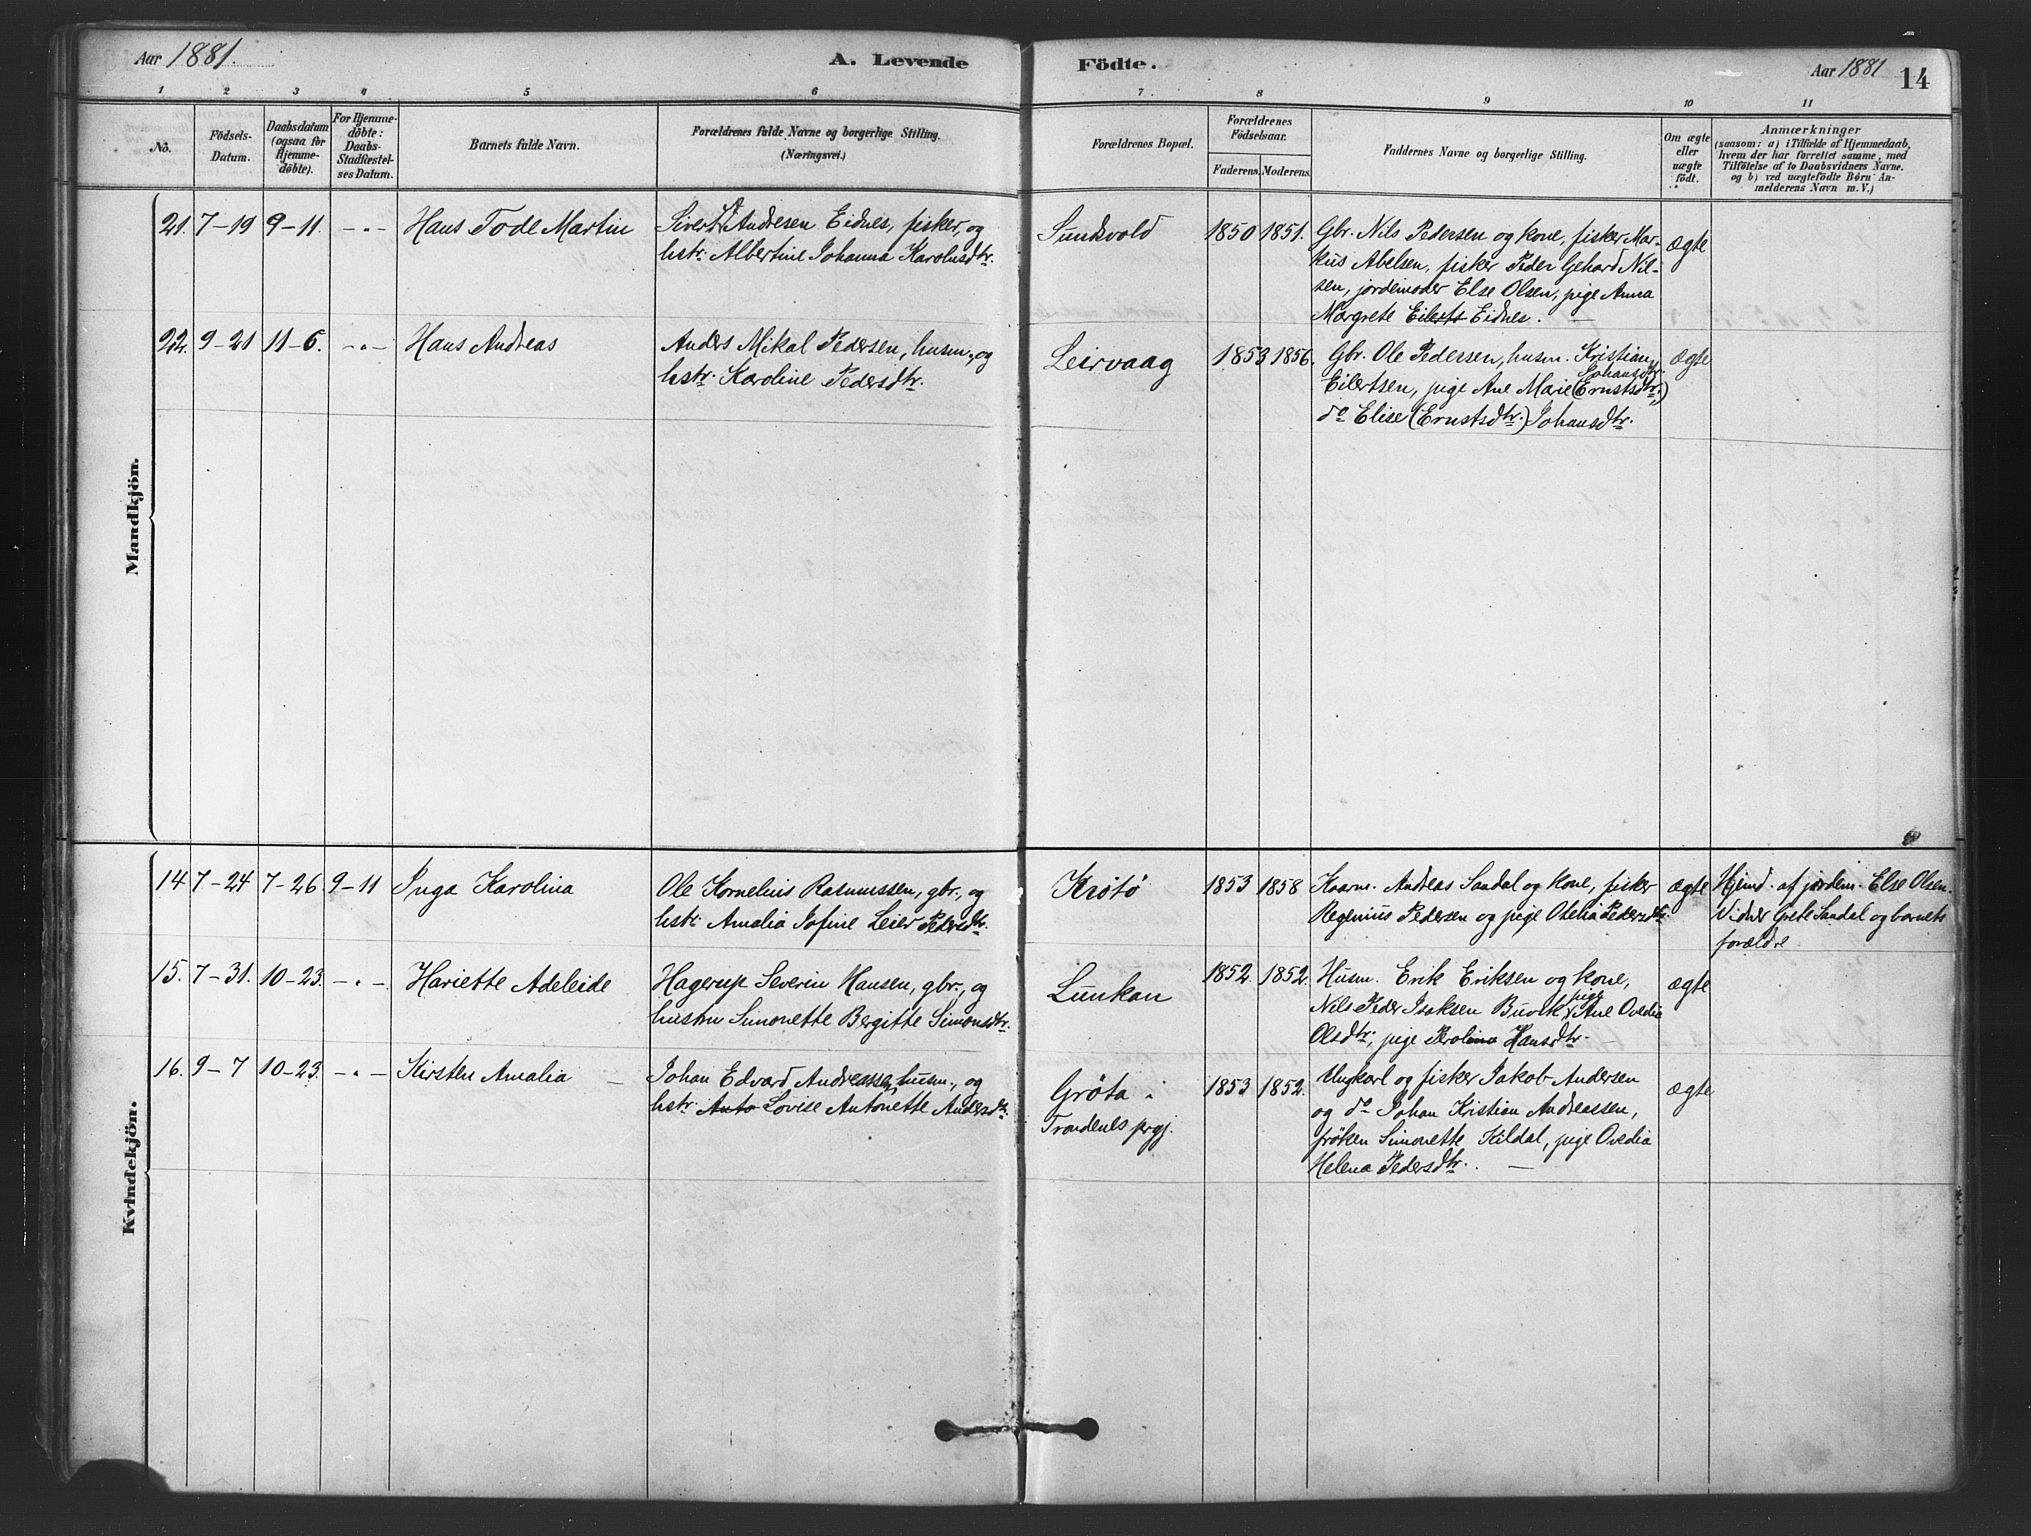 Aar 1881.
A. Levende Födte.
Aar 1881
14
1 2 3 4 5 6 7 8 9 10 11
No.
Födsels-
Datum.
Daabsdatum
(ogsaa for
Hjemme-
döbte).
For Hjemme-
döbte:
Daabs-
Stadfæstel-
ses Datum.
Barnets fulde Navn.
Forældrenes fulde Navne og borgerlige Stilling.
(Næringsvei.)
Forældrenes Bopæl.
Forældrenes
Födselsaar.
Faderens. Moderens.
Faddernes Navne og borgerlige Stilling.
Om ægte
eller
uægte
födt.
Anmærkninger
(saasom: a) i Tilfælde af Hjemmedaab,
hvem der har forrettet samme, med
Tilföielse af to Daabsvidners Navne.
og b) ved uægtefödte Börn An-
melderens Navn m. V.)
Mandkjön.
21. 7-19 9-11. -"- Hans Tode Martin
Sivert Andresen Eidnes, fisker, og
hstr. Albertine Johanna Karolusdtr.
Sundsvold
1850 1851.
Gbr. Nils Pedersen og kone, fisker Mar-
kus Abelsen, fisker Peder Gehard Nil-
sen, jordemoder Else Olsen, pige Anna
Margrete Eilerts Eidnes. -
ægte
22. 9-21 11-6. -"- Hans Andreas
Anders Mikal Pedersen, husm., og
hstr. Karoline Pedersdtr.
Leirvaag
1853 1856.
Gbr. Ole Pedersen, husm. Kristian
Johansdtr.
Eilertsen, pige Ane Marie (Ernstsdtr.)
do Elise (Ernstsdtr.) Johansdtr.
ægte
Kvindekjön.
14 7-24 7-26 9-11 Inga Karolina
Ole Kornelius Rasmussen, gbr., og
hstr. Amalia Jofine Leier Pedersdtr.
Krötö
1853 1858
Kaarm. Andreas Sandal og kone, fisker
Regenius Pedersen og pige Otelia Pedersdtr.
ægte
Hjemd. af jordem. Else Olsen.
Vidner Grete Sandal og barnets
forældre
15. 7-31. 10-23. -"- Hariette Adeleide
Hagerup Severin Hansen, gbr., og
hustru Simonette Bergitte Simonsdtr.
Lunkan
1852. 1852.
Husm. Erik Eriksen og kone,
pige
Nils Peder Isaksen Buvik, Ane Ovedia
Olsdtr., pige Karolina Hansdtr. -
ægte
16. 9-7 10-23. -"- Kirsten Amalia -
Johan Edvard Andreassen, husm., og
hstr. Anto Lovise Antonette Andersdtr.
Gröta i
Trondenes prgj.
1853 1852.
Ungkarl og fisker Jakob Andersen
og do Johan Kristian Andreassen,
fröken Simonette Kildal, pige Ovedia
Helena Pedersdtr. -
ægte